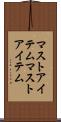 マストアイ
テムマスト
アイテム